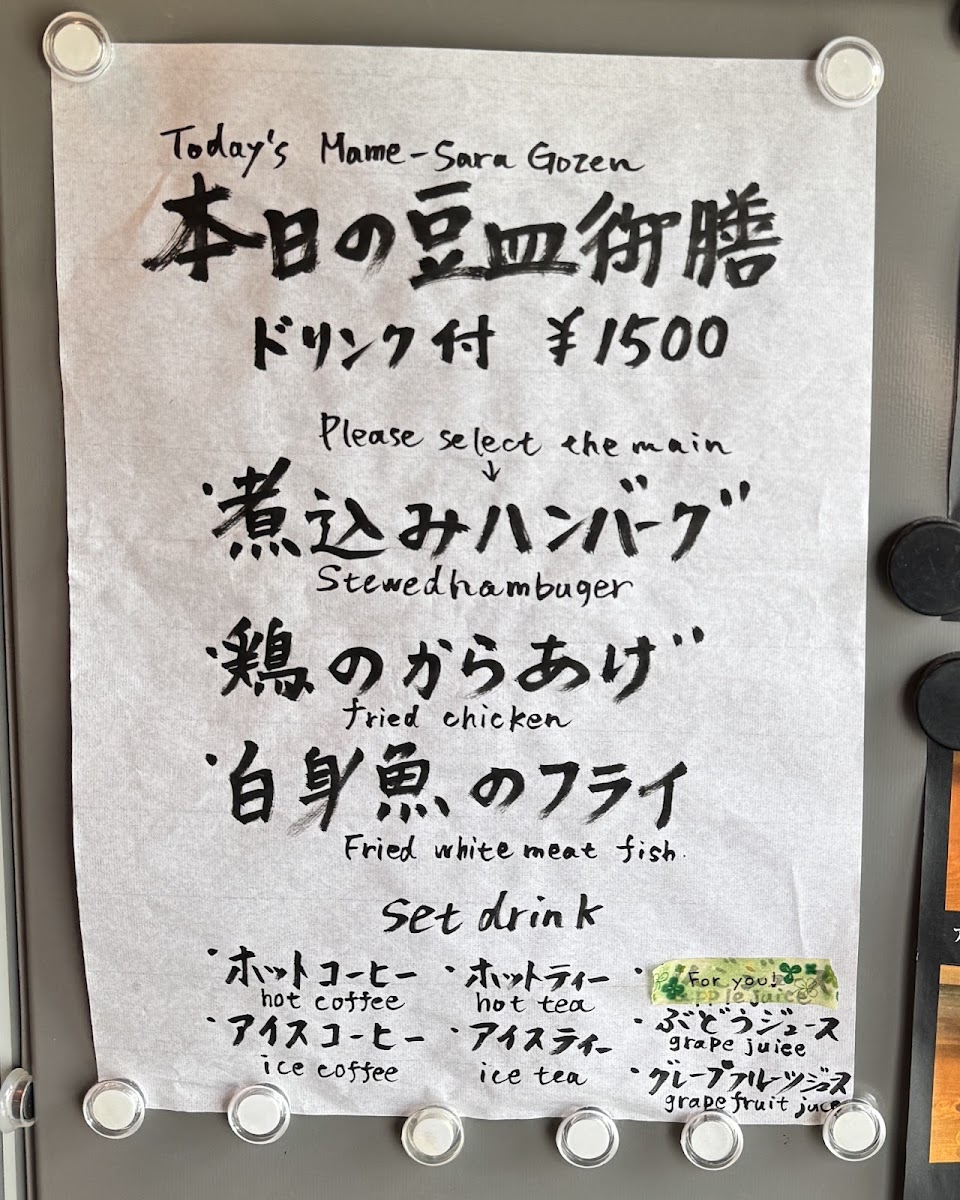 Today's Mame-Sara Gozen
本日の豆皿御膳
ドリンク付 ¥1500
Please select the main
↓
・煮込みハンバーグ
Stewed hambuger
・鶏のからあげ
fried chicken
・白身魚のフライ
Fried white meat fish.
set drink
・ホットコーヒー ・ホットティー ・
hot coffee hot tea
For you!
apple juice
・アイスコーヒー ・アイスティー ・ぶどうジュース
ice coffee ice tea grape juiee
・グレープフルーツジュース
grapefruit juce